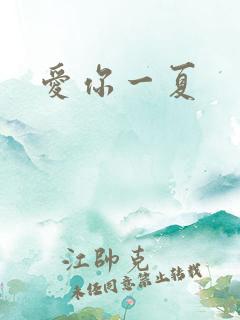 愛你一夏
江帥克
未经同意禁止转载